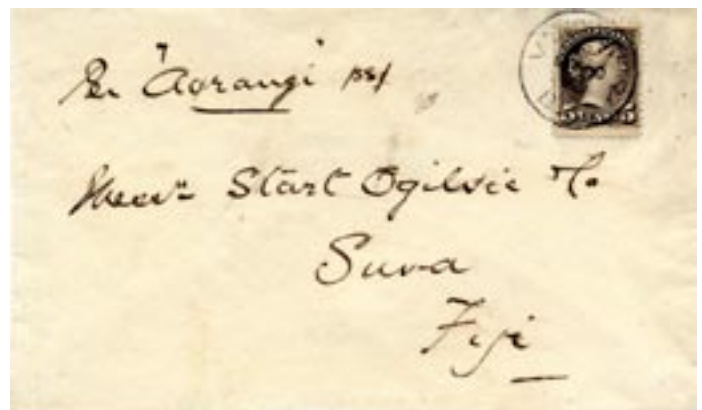 "Aorangi"
Messrs Start Ogilvie & Co
Suva
Fiji